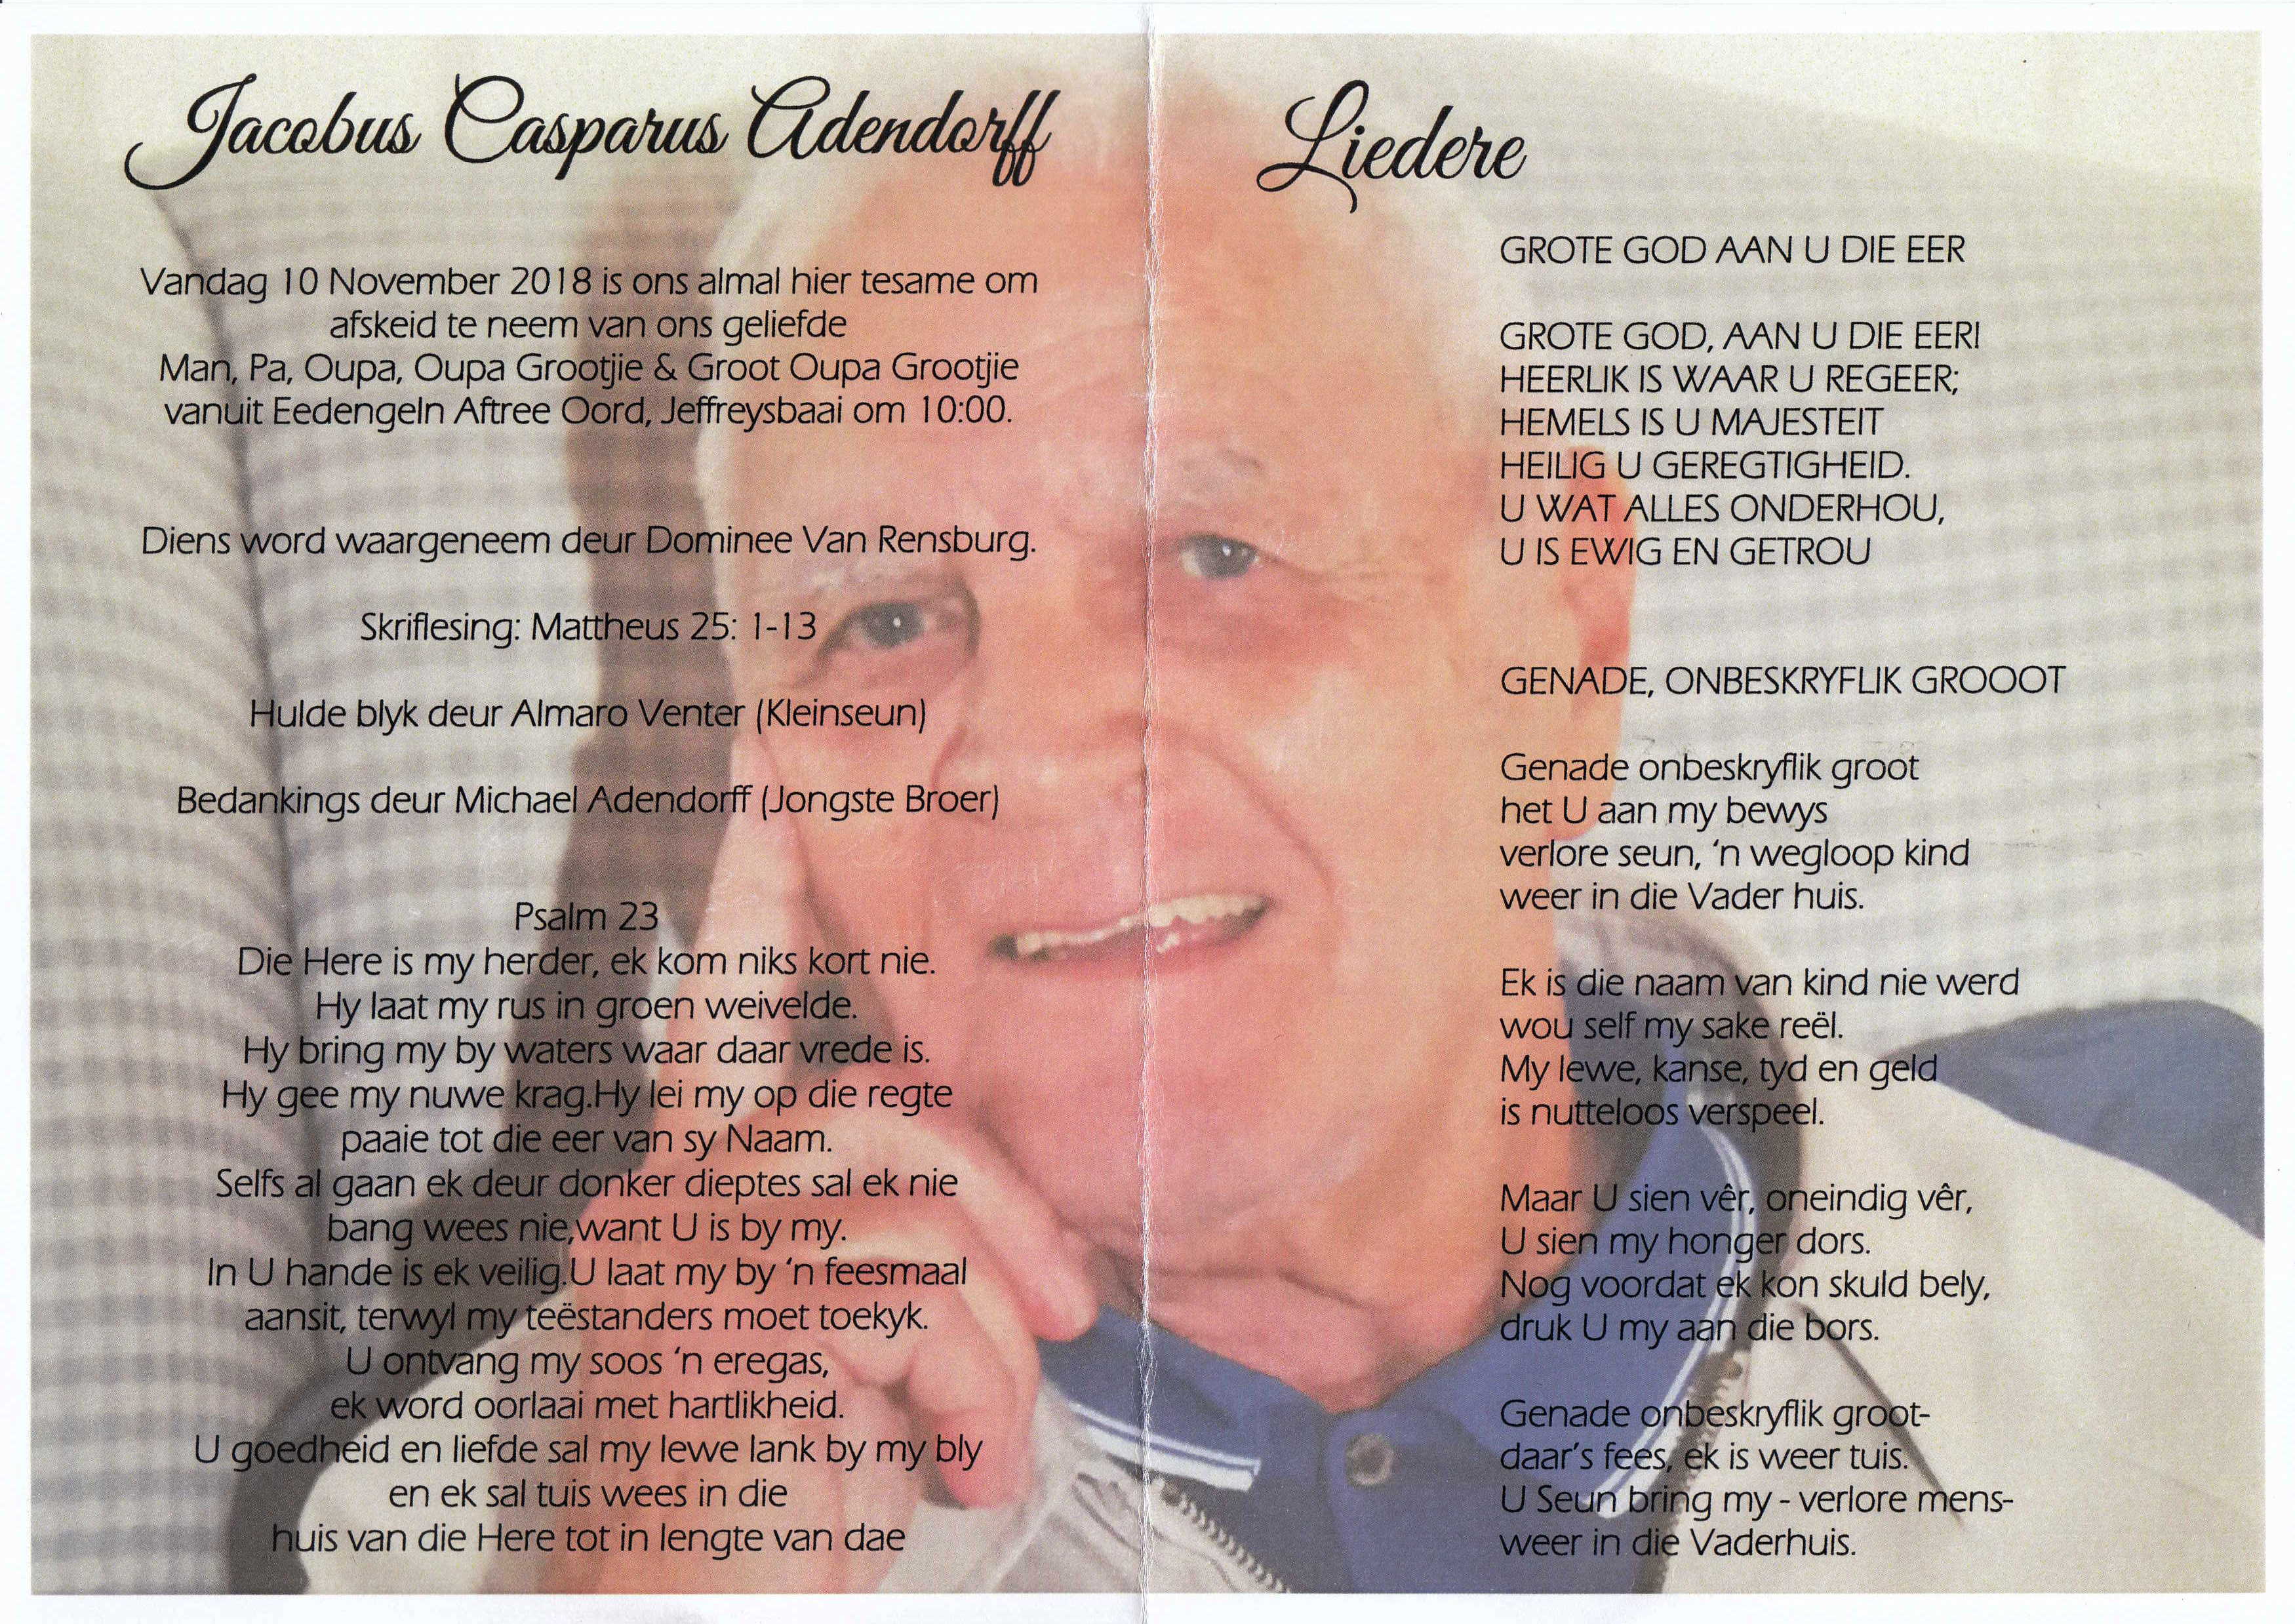 Jacobus Casparus Adendorff
Vandag 10 November 2018 is ons almal hier tesame om
afskeid te neem van ons geliefde
Man, Pa, Oupa, Oupa Grootjie & Groot Oupa Grootjie
vanuit Eedengeln Aftree Oord, Jeffreysbaai om 10:00.
Diens word waargeneem deur Dominee Van Rensburg.
Skriflesing: Mattheus 25: 1-13
Hulde blyk deur Almaro Venter (Kleinseun)
Bedankings deur Michael Adendorff (Jongste Broer)
Psalm 23
Die Here is my herder, ek kom niks kort nie.
Hy laat my rus in groen weivelde.
Hy bring my by waters waar daar vrede is.
Hy gee my nuwe krag.Hy lei my op die regte
paaie tot die eer van sy Naam.
Selfs al gaan ek deur donker dieptes sal ek nie
bang wees nie,want U is by my.
In U hande is ek veilig.U laat my by ‘n feesmaal
aansit, terwyl my teëstanders moet toekyk.
U ontvang my soos ‘n eregas,
ek word oorlaai met hartlikheid.
U goedheid en liefde sal my lewe lank by my bly
en ek sal tuis wees in die
huis van die Here tot in lengte van dae
Liedere
GROTE GOD AAN U DIE EER
GROTE GOD, AAN U DIE EER!
HEERLIK IS WAAR U REGEER;
HEMELS IS U MAJESTEIT
HEILIG U GEREGTIGHEID.
U WAT ALLES ONDERHOU,
U IS EWIG EN GETROU
GENADE, ONBESKRYFLIK GROOOT
Genade onbeskryflik groot
het U aan my bewys
verlore seun, ‘n wegloop kind
weer in die Vader huis.
Ek is die naam van kind nie werd
wou self my sake reël.
My lewe, kanse, tyd en geld
is nutteloos verspeel.
Maar U sien vêr, oneindig vêr,
U sien my honger dors.
Nog voordat ek kon skuld bely,
druk U my aan die bors.
Genade onbeskryflik groot-
daar’s fees, ek is weer tuis.
U Seun bring my - verlore mens-
weer in die Vaderhuis.